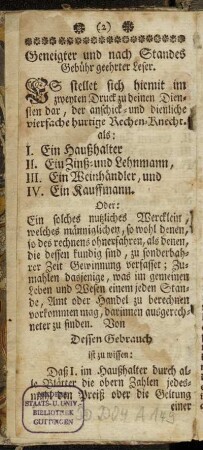 (2)
Geneigter und nach Standes
Gebühr geehrter Leser.
ES stellet sich hiemit im
zweyten Druck zu deinen Dien-
sten dar, der anschick- und dienliche
vierfache hurtige Rechen-Knecht,
als:
I. Ein Haußhalter
II. Ein Zinß- und Lehnmann,
III. Ein Weinhändler, und
IV. Ein Kauffmann.
Oder:
Ein solches nutzliches Wercklein,
welches männiglichen, so wohl denen,
so des rechnens ohnerfahren, als denen,
die dessen kundig sind, zu sonderbah-
rer Zeit Gewinnung verfasset; Zu-
mahlen dasjenige, was im gemeinen
Leben und Wesen einem jeden Stan-
de, Amt oder Handel zu berechnen
vorkommen mag, darinnen außgerech-
neter zu finden. Von
Dessen Gebrauch
ist zu wissen:
Daß I. im Haußhalter durch al-
le Blätter die obern Zahlen jedes-
den Preiß oder die Geltung
einer
STAATS-U. UNIV.
BIBLIOTHEK
GÖTTINGEN